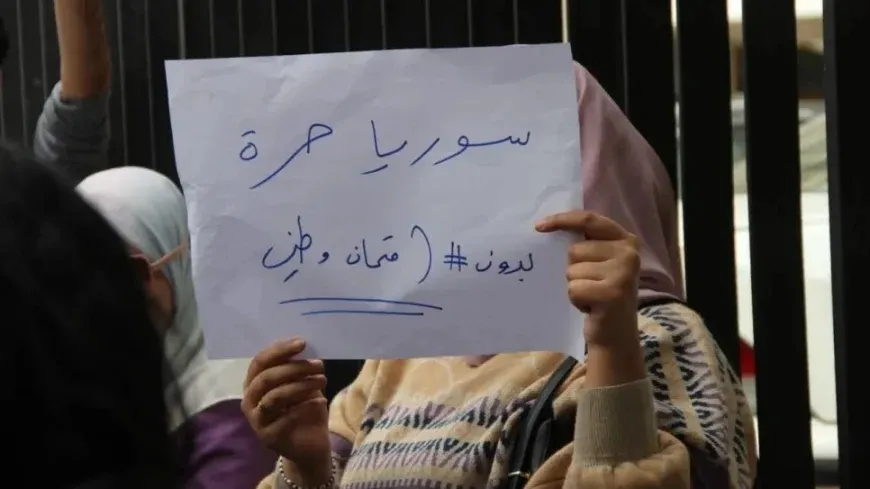 سوريا حرة
بدون #امتحان وطني